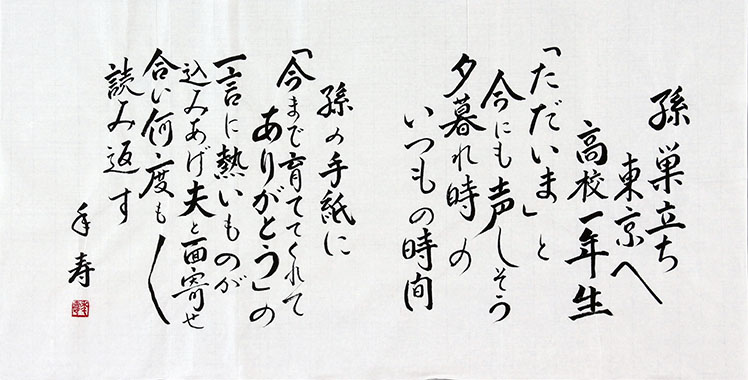 孫 巣立ち
東京へ
高校一年生
「ただいま」と
今にも声しそう
夕暮れ時の
いつもの時間
孫の手紙に
「今まで育ててくれて
ありがとう」の
一言に熱いものが
込みあげ夫と面寄せ
合い何度も〱
読み返す
寿